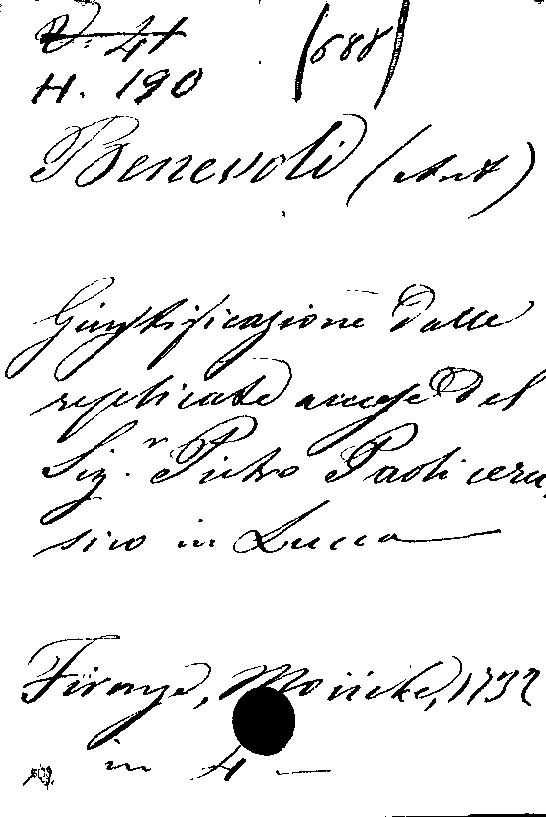 V. 41 (688)
H. 190
Benevoli (Ant)
Giustificazione dalle
replicate accuse del
Sig.r Pietro Paoli ceru,
sico in Lucca
Firenze, Moücke, 1732
in 4 —